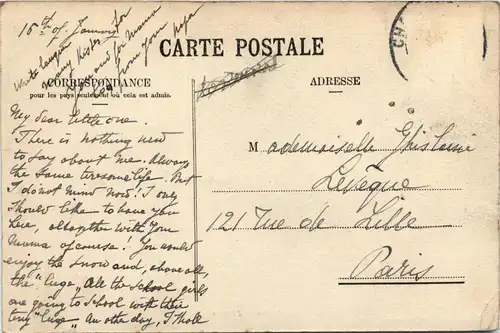 15th of January
Write longer
many kisses for
you and for Mama
from your papa
CARTE POSTALE
CORRESPONDANCE
pour les pays seulement où cela est admis.
ADRESSE
My dear little one.
There is nothing new
to say about me. Always
the same tiresome life. But
I do not mind now! I only
should like to have you
here, altogether with your
Mama of course! You would
enjoy the snow and, above all,
the "Luge" All the school girls
are going to school with their
tiny "Luge" An other day, I
Mademoiselle Ghislaine
Levêque
121 rue de Lille
Paris